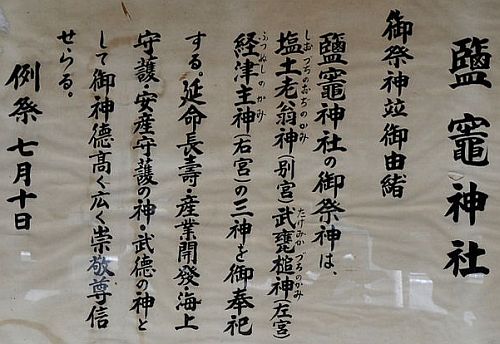 鹽竈神社
御祭神竝御由緒
鹽竈神社の御祭神は、
塩土老翁神(別宮)武甕槌神(左宮)
しおつちのおぢのかみ たけみかづちのかみ
経津主神(右宮)の三神を御奉祀
ふつぬしのかみ
する。延命長寿・産業開發・海上
守護・安産守護の神・武徳の神と
して御神徳髙く広く崇敬尊信
せらる。
例祭 七月十日